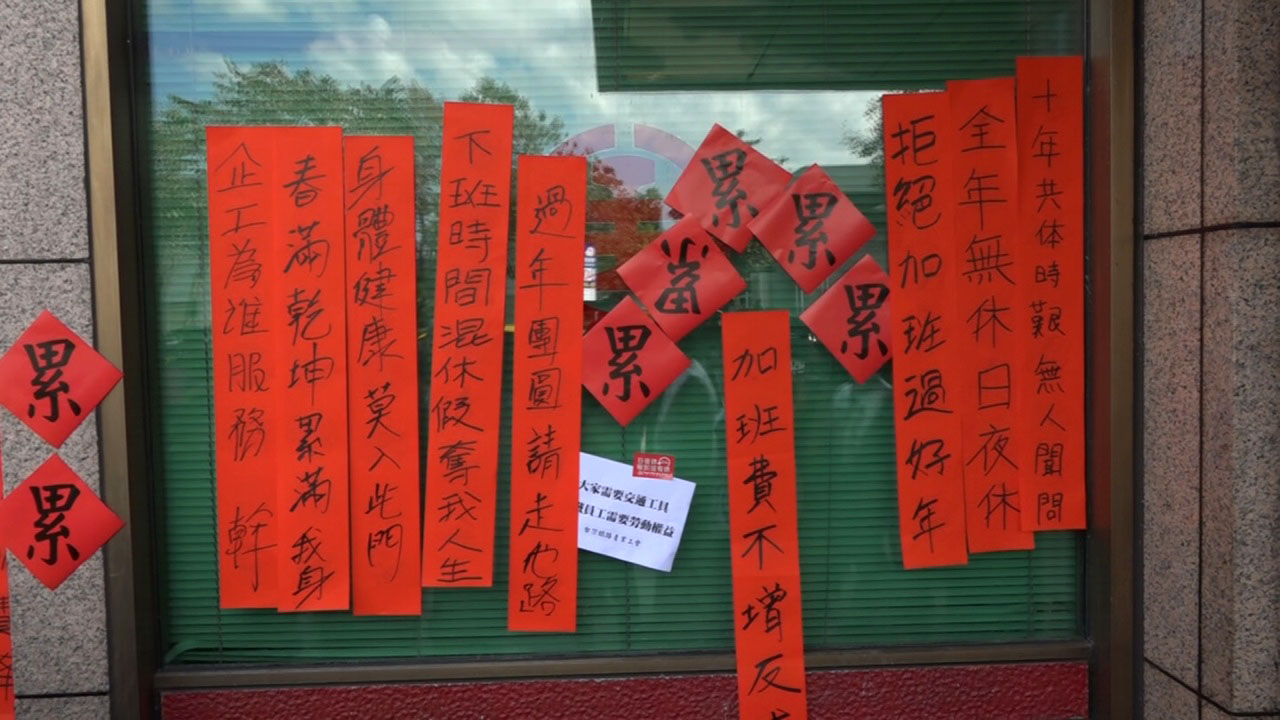 十年共体時艱無人聞問
全年無休日夜休
拒絕加班過好年
累
累
累
累
累
加班費不增反
大家需要交通工具
員工需要勞動權益
台灣鐵路產業工會
過年團圓請走他路
下班時間混休假奪我人生
身體健康莫入此門
春滿乾坤累滿我身
企工為誰服務 幹
累
累
降